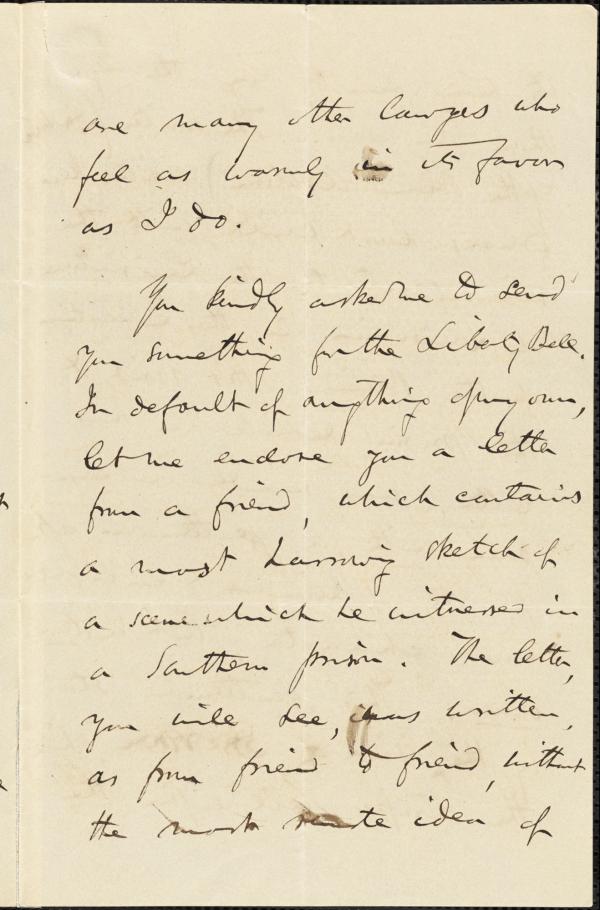 are many other lawyers who
feel as warmly in its favor
as I do.
You kindly asked me to send
you something for the Liberty Bell.
In default of anything of my own,
let me enclose you a letter
from a friend, which contains
a most harrowing sketch of
a scene which he witnessed in
a Southern prison. The letter,
you will see, was written,
as from friend to friend, without
the most remote idea of